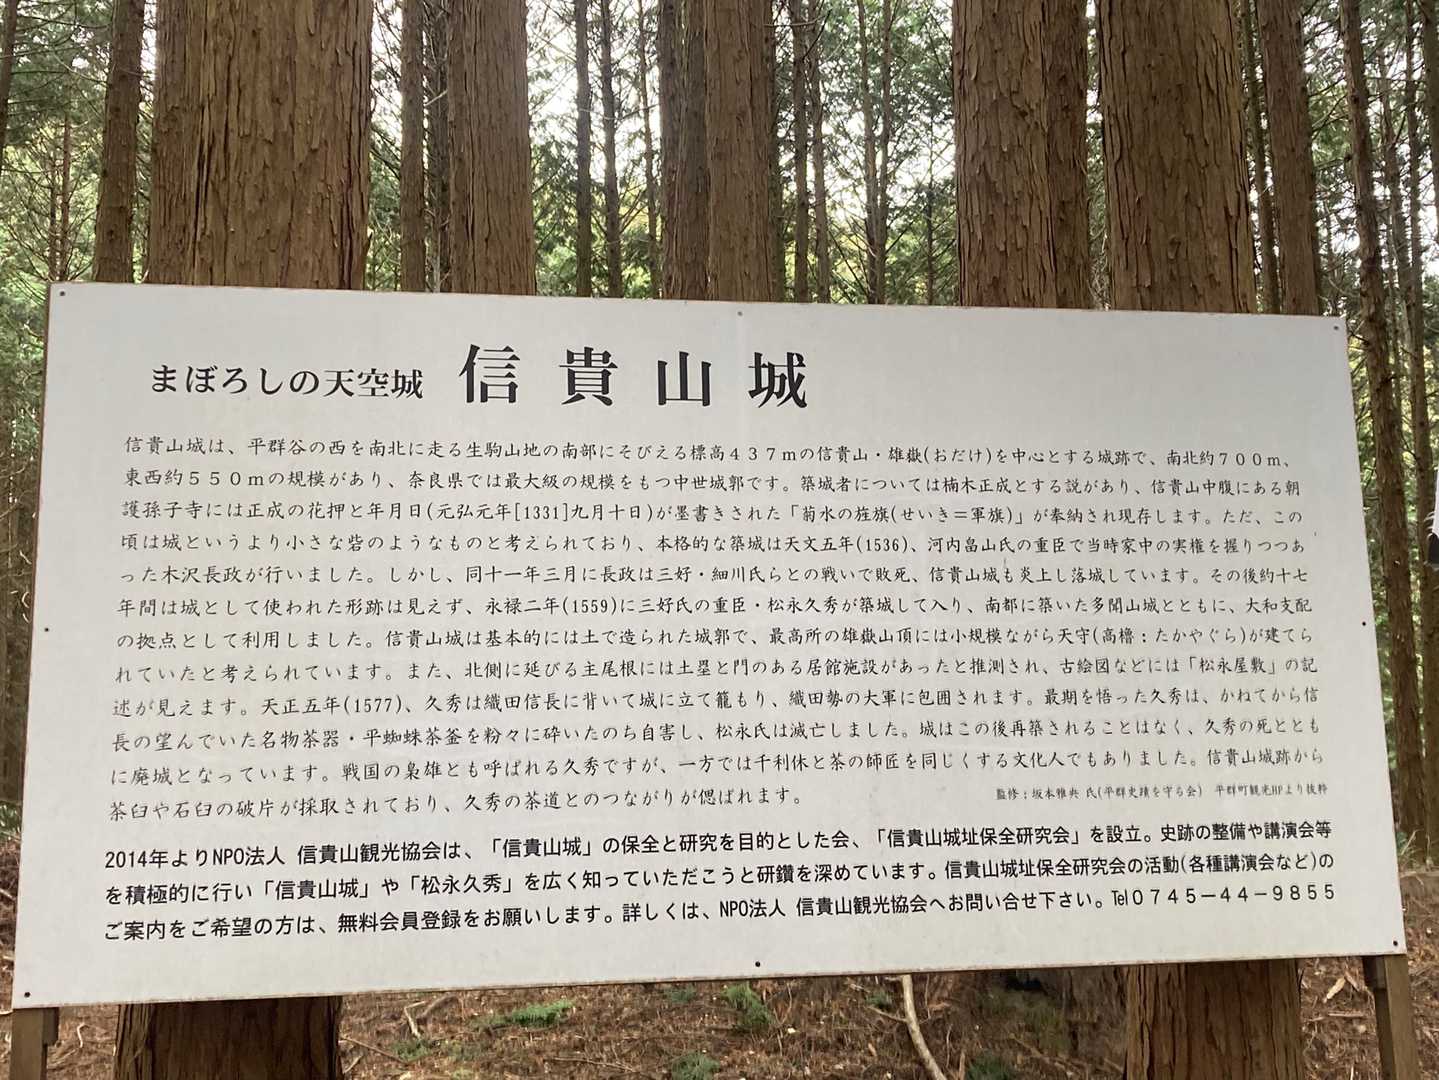 まぼろしの天空城 信貴山城
信貴山城は、平群谷の西を南北に走る生駒山地の南部にそびえる標高４３７ｍの信貴山・雄嶽(おだけ)を中心とする城跡で、南北約７００ｍ、
東西約５５０ｍの規模があり、奈良県では最大級の規模をもつ中世城郭です。築城者については楠木正成とする説があり、信貴山中腹にある朝
護孫子寺には正成の花押と年月日(元弘元年[1331]九月十日)が墨書きされた「菊水の旌旗(せいき＝軍旗)」が奉納され現存します。ただ、この
頃は城というより小さな砦のようなものと考えられており、本格的な築城は天文五年(1536)、河内畠山氏の重臣で当時家中の実権を握りつつあ
った木沢長政が行いました。しかし、同十一年三月に長政は三好・細川氏らとの戦いで敗死、信貴山城も炎上し落城しています。その後約十七
年間は城として使われた形跡は見えず、永禄二年(1559)に三好氏の重臣・松永久秀が築城して入り、南都に築いた多聞山城とともに、大和支配
の拠点として利用しました。信貴山城は基本的には土で造られた城郭で、最高所の雄嶽山頂には小規模ながら天守(高櫓：たかやぐら)が建てら
れていたと考えられています。また、北側に延びる主尾根には土塁と門のある居館施設があったと推測され、古絵図などには「松永屋敷」の記
述が見えます。天正五年(1577)、久秀は織田信長に背いて城に立て籠もり、織田勢の大軍に包囲されます。最期を悟った久秀は、かねてから信
長の望んでいた名物茶器・平蜘蛛茶釜を粉々に砕いたのち自害し、松永氏は滅亡しました。城はこの後再築されることはなく、久秀の死ととも
に廃城となっています。戦国の梟雄とも呼ばれる久秀ですが、一方では千利休と茶の師匠を同じくする文化人でもありました。信貴山城跡から
茶臼や石臼の破片が採取されており、久秀の茶道とのつながりが偲ばれます。
監修：坂本雅央 氏(平群史蹟を守る会)　平群町観光HPより抜粋
2014年よりNPO法人 信貴山観光協会は、「信貴山城」の保全と研究を目的とした会、「信貴山城址保全研究会」を設立。史跡の整備や講演会等
を積極的に行い「信貴山城」や「松永久秀」を広く知っていただこうと研鑽を深めています。信貴山城址保全研究会の活動(各種講演会など)の
ご案内をご希望の方は、無料会員登録をお願いします。詳しくは、NPO法人 信貴山観光協会へお問い合せ下さい。℡０７４５－４４－９８５５